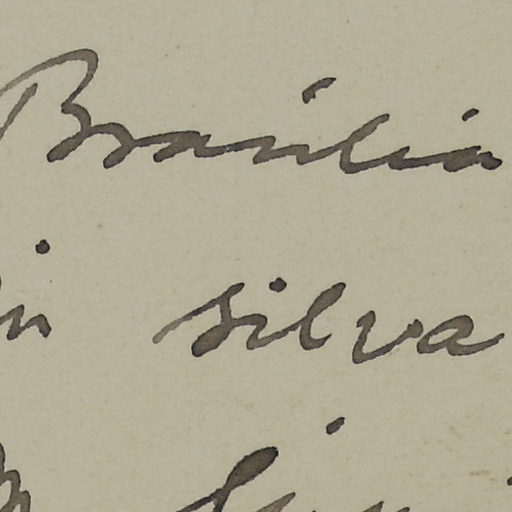 Brasilia
in silva